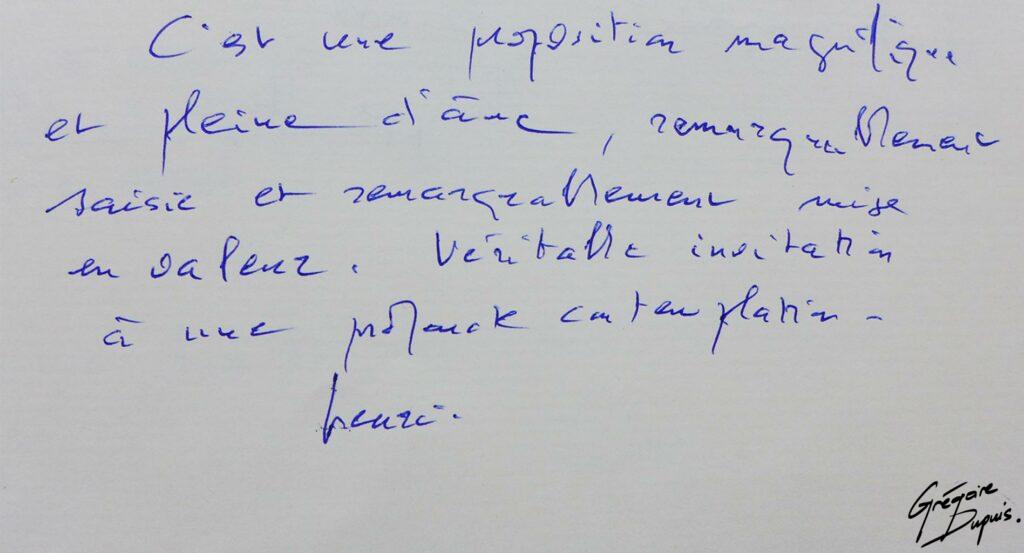 C'est une proposition magnifique
et pleine d'âme, remarquablement
saisie et remarquablement mise
en valeur. Véritable invitation
à une profonde contemplation.
Henri.
Grégoire
Dupuis.